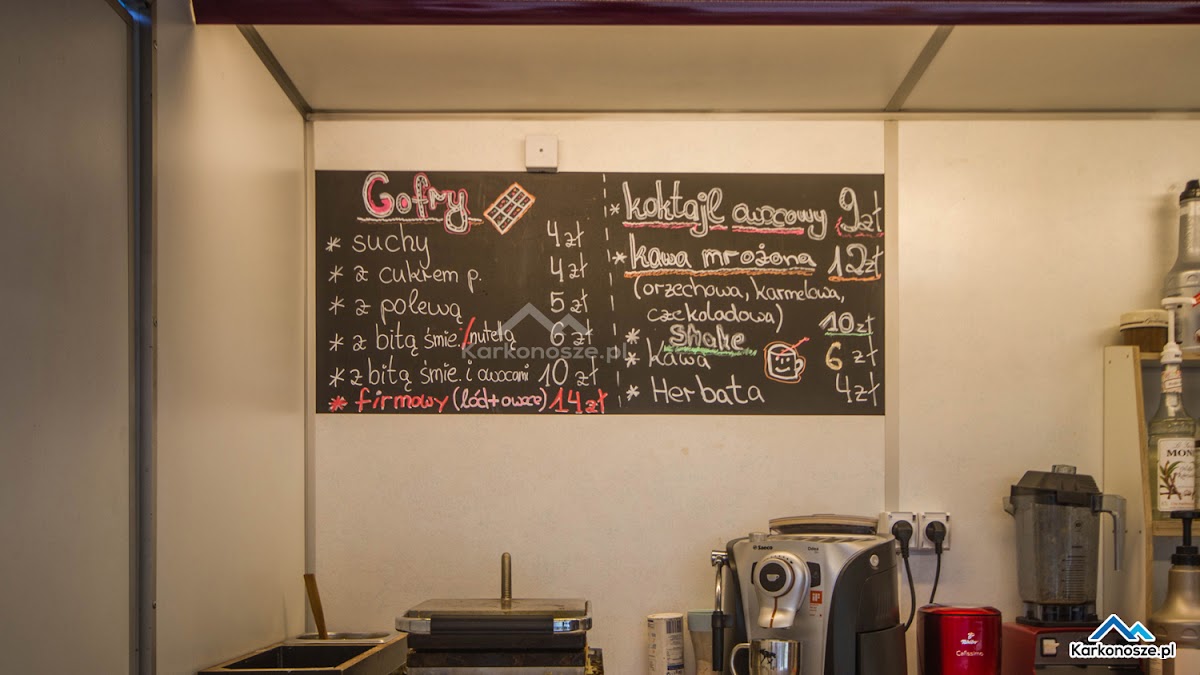 Gofry
* suchy 4 zł
* z cukrem p. 4 zł
* z polewą 5 zł
* z bitą śmie./nutellą 6 zł
* z bitą śmie. i owocami 10 zł
* firmowy (lód+owoce) 14 zł
* koktajl owocowy 9 zł
* kawa mrożona 12 zł
(orzechowa, karmelowa,
czekoladowa)
* Shake 10 zł
* Kawa 6 zł
* Herbata 4 zł
Karkonosze.pl
Saeco
MON
Tchibo
Cafissimo
Karkonosze.pl